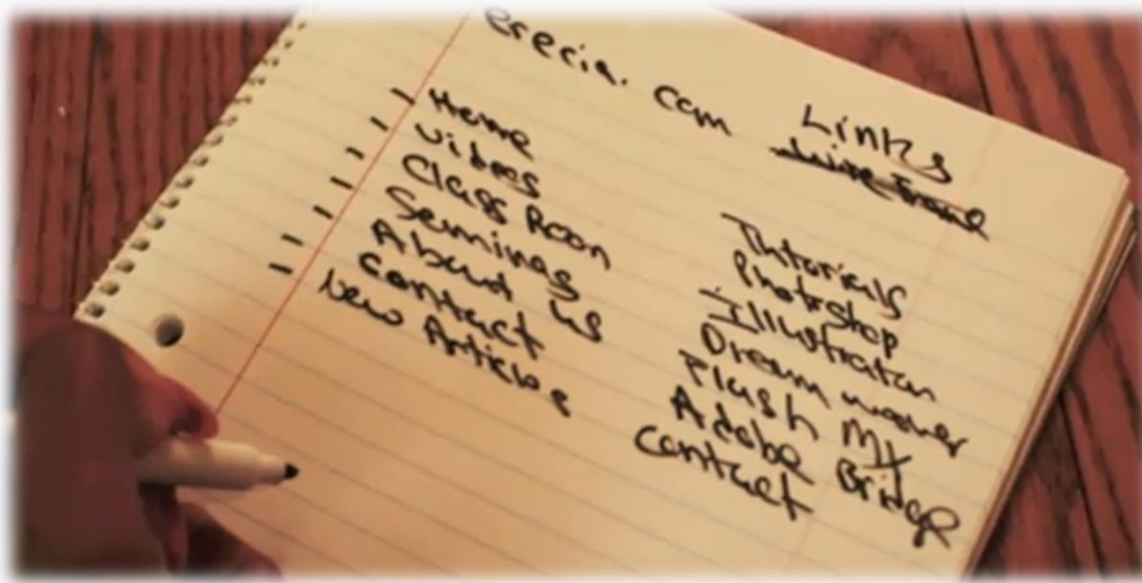 erecia.com Links
Home
Videos
Class Room
Seminars
About us
Contact
New Articles
Tutorials
Photoshop
Illustrator
Dream weaver
Flash MX
Adobe Bridge
Contact